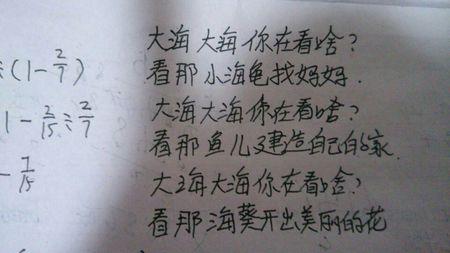 大海大海你在看啥？
看那小海龟找妈妈.
÷(1-2/7)
大海大海你在看啥？
1-2/15÷2/7
看那鱼儿建造自己的家.
大海大海你在看啥？
看那海葵开出美丽的花